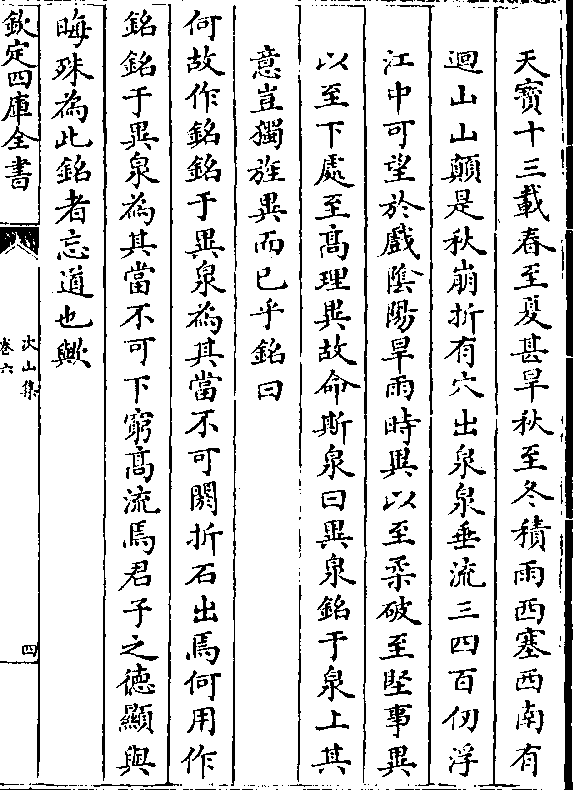 天寳十三載春至夏甚旱秋至冬積雨西塞西南有
迴山山顛是秋崩折有穴出泉泉垂流三四百仞浮
江中可望於戲陰陽旱雨時異以至柔破至堅事異
以至下處至髙理異故命斯泉曰異泉銘于泉上其
意豈獨旌異而已乎銘曰
何故作銘銘于異泉為其當不可閼折石出焉何用作
銘銘于異泉為其當不可下窮髙流焉君子之徳顯與
晦殊為此銘者忘道也歟
欽定四庫全書
次山集
卷六
四